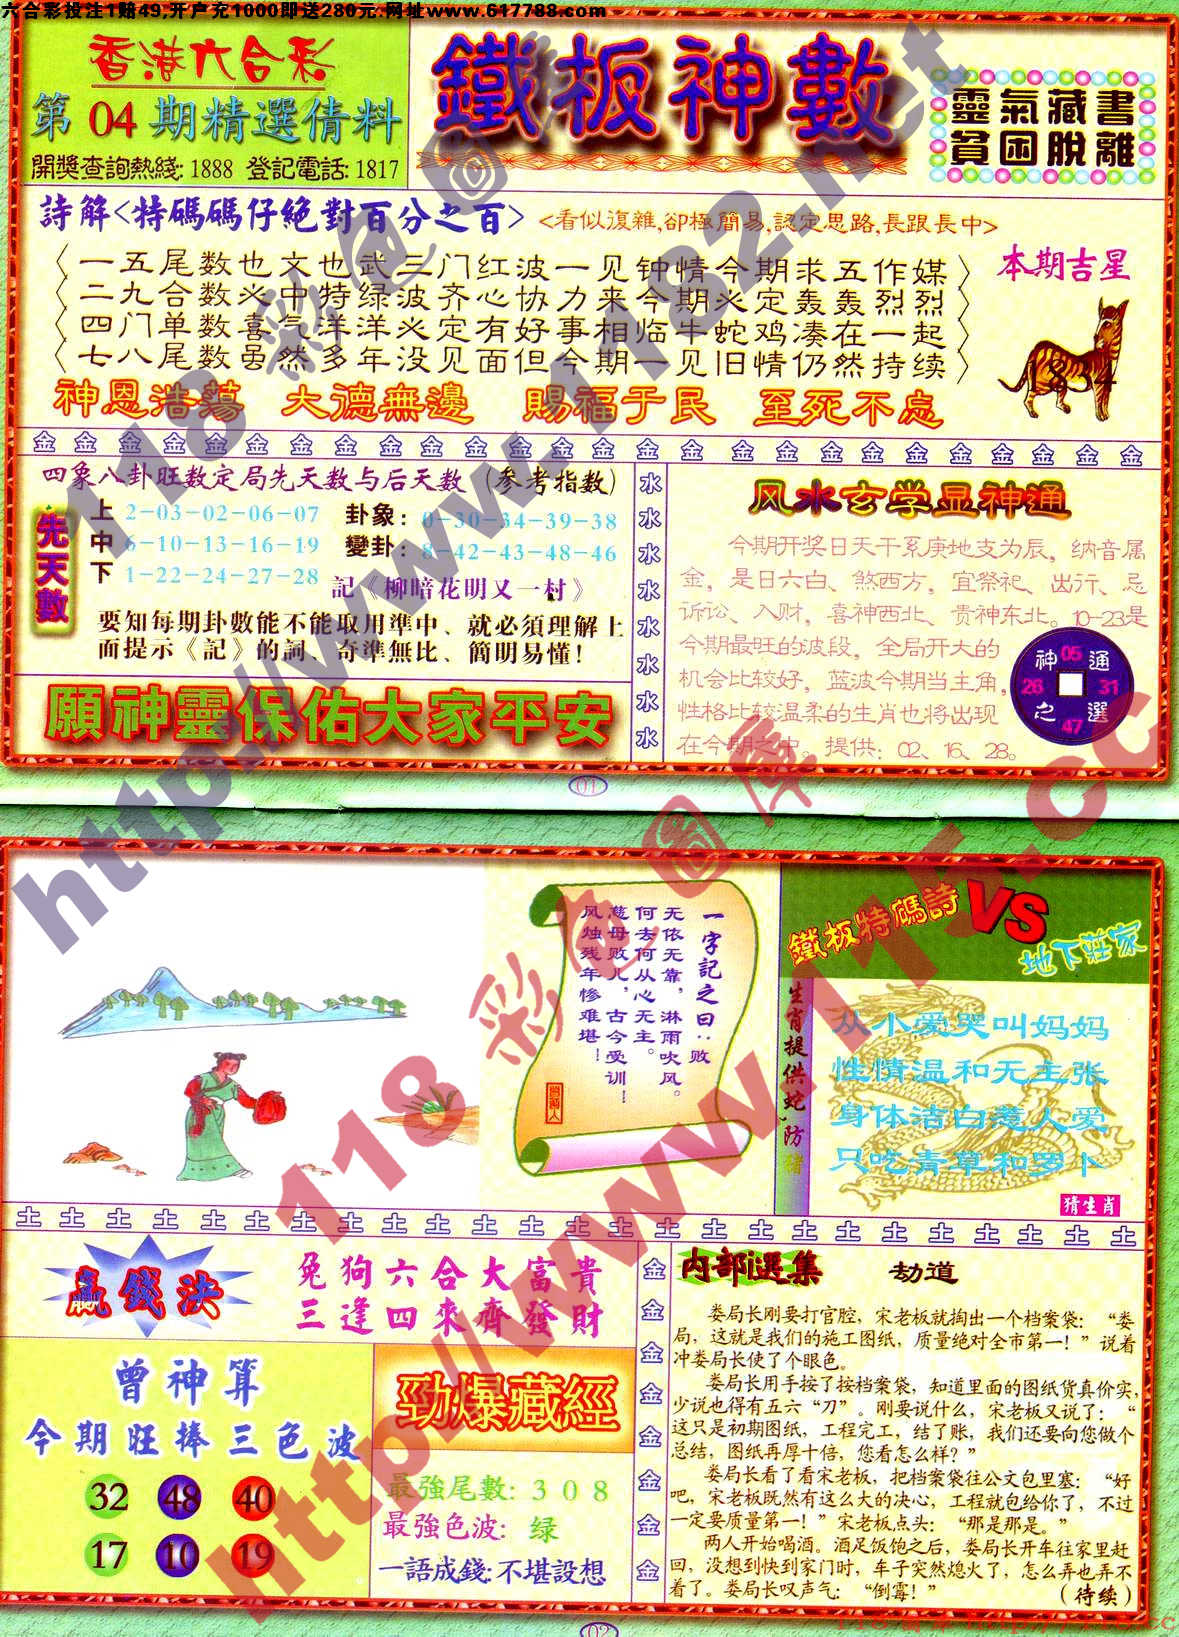 六合彩投注1赔49,开户充1000即送280元:网址www.617788.com
香港六合彩
第04期精選倩料
開獎查詢熱綫:1888 登記電話:1817
鐵板神數
靈氣藏書
貧困脫離
詩解<特碼碼仔絕對百分之百>
<看似復雜,卻極簡易,認定思路,長跟長中>
一五尾数也文也武三门红波一见钟情今期求五作媒
二九合数必中特绿波齐心协力来今期必定轰轰烈烈
四门单数喜气洋洋必定有好事相临牛蛇鸡凑在一起
七八尾数虽然多年没见面但今期一见旧情仍然持续
本期吉星
834
神恩浩蕩 大德無邊 賜福于民 至死不忘
金 金 金 金 金 金 金 金 金 金 金 金 金 金 金 金 金 金 金 金 金 金 金 金 金 金
四象八卦旺数定局先天数与后天数(参考指数)
先天數
上 2-03-02-06-07 卦象: 0-30-34-39-38
中 6-10-13-16-19 變卦: 8-42-43-48-46
下 1-22-24-27-28 記《柳暗花明又一村》
要知每期卦數能不能取用準中、就必須理解上
面提示《記》的詞、奇準無比、簡明易懂!
願神靈保佑大家平安
水 水 水 水 水 水 水 水
风水玄学显神通
今期开奖日天干系庚地支为辰,纳音属
金,是日六白、煞西方,宜祭祀、出行、忌
诉讼、入财,喜神西北、贵神东北。10-23是
今期最旺的波段,全局开大的
机会比较好,蓝波今期当主角,
性格比较温柔的生肖也将出现
在今期之中。提供:02、16、28。
神 05 通
26 31
之 47 選
01
一字記之曰:败
无依无靠,淋雨吹风。
何去何从心无主。
慈母败儿,古今受训!
风烛残年惨难堪!
鐵板特碼詩VS地下莊家
生肖提供蛇,防豬
从小爱哭叫妈妈
性情温和无主张
身体洁白惹人爱
只吃青草和罗卜
猜生肖
土 土 土 土 土 土 土 土 土 土 土 土 土 土 土 土 土 土 土 土 土 土 土 土 土 土
贏錢決
兔狗六合大富貴
三逢四來齊發財
曾神算
今期旺捧三色波
32 48 40
17 10 19
勁爆藏經
最強尾數:308
最強色波:绿
一語成錢:不堪設想
金 金 金 金 金 金 金 金
内部選集 劫道
娄局长刚要打官腔,宋老板就掏出一个档案袋:“娄
局,这就是我们的施工图纸,质量绝对全市第一!”说着
冲娄局长使了个眼色。
娄局长用手按了按档案袋,知道里面的图纸货真价实,
少说也得有五六“刀”。刚要说什么,宋老板又说了:“
这只是初期图纸,工程完工,结了账,我们还要向您做个
总结,图纸再厚十倍,您看怎么样?”
娄局长看了看宋老板,把档案袋往公文包里塞:“好
吧,宋老板既然有这么大的决心,工程就包给你了,不过
一定要质量第一!”宋老板点头:“那是那是。”
两人开始喝酒。酒足饭饱之后,娄局长开车往家里赶
回,没想到快到家门时,车子突然熄火了,怎么弄也弄不
着了。娄局长叹声气:“倒霉!” (待续)
02
118彩色圖庫 http://www.1182.net
118彩色圖庫 http://www.115.cc